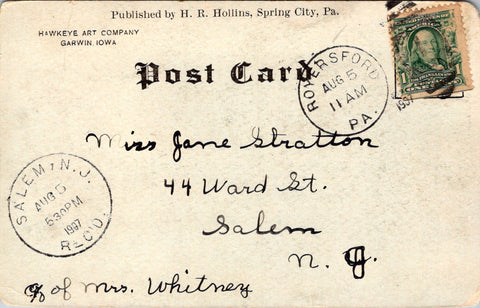 Published by H. R. Hollins, Spring City, Pa.
HAWKEYE ART COMPANY
GARWIN, IOWA
Post Card
ROYERSFORD
AUG 5
11 AM
PA.
1907
1
Miss Jane Stratton
44 Ward St.
Salem
N. J.
c/o of Mrs. Whitney
SALEM, N.J.
AUG 5
530PM
1907
REC'D.